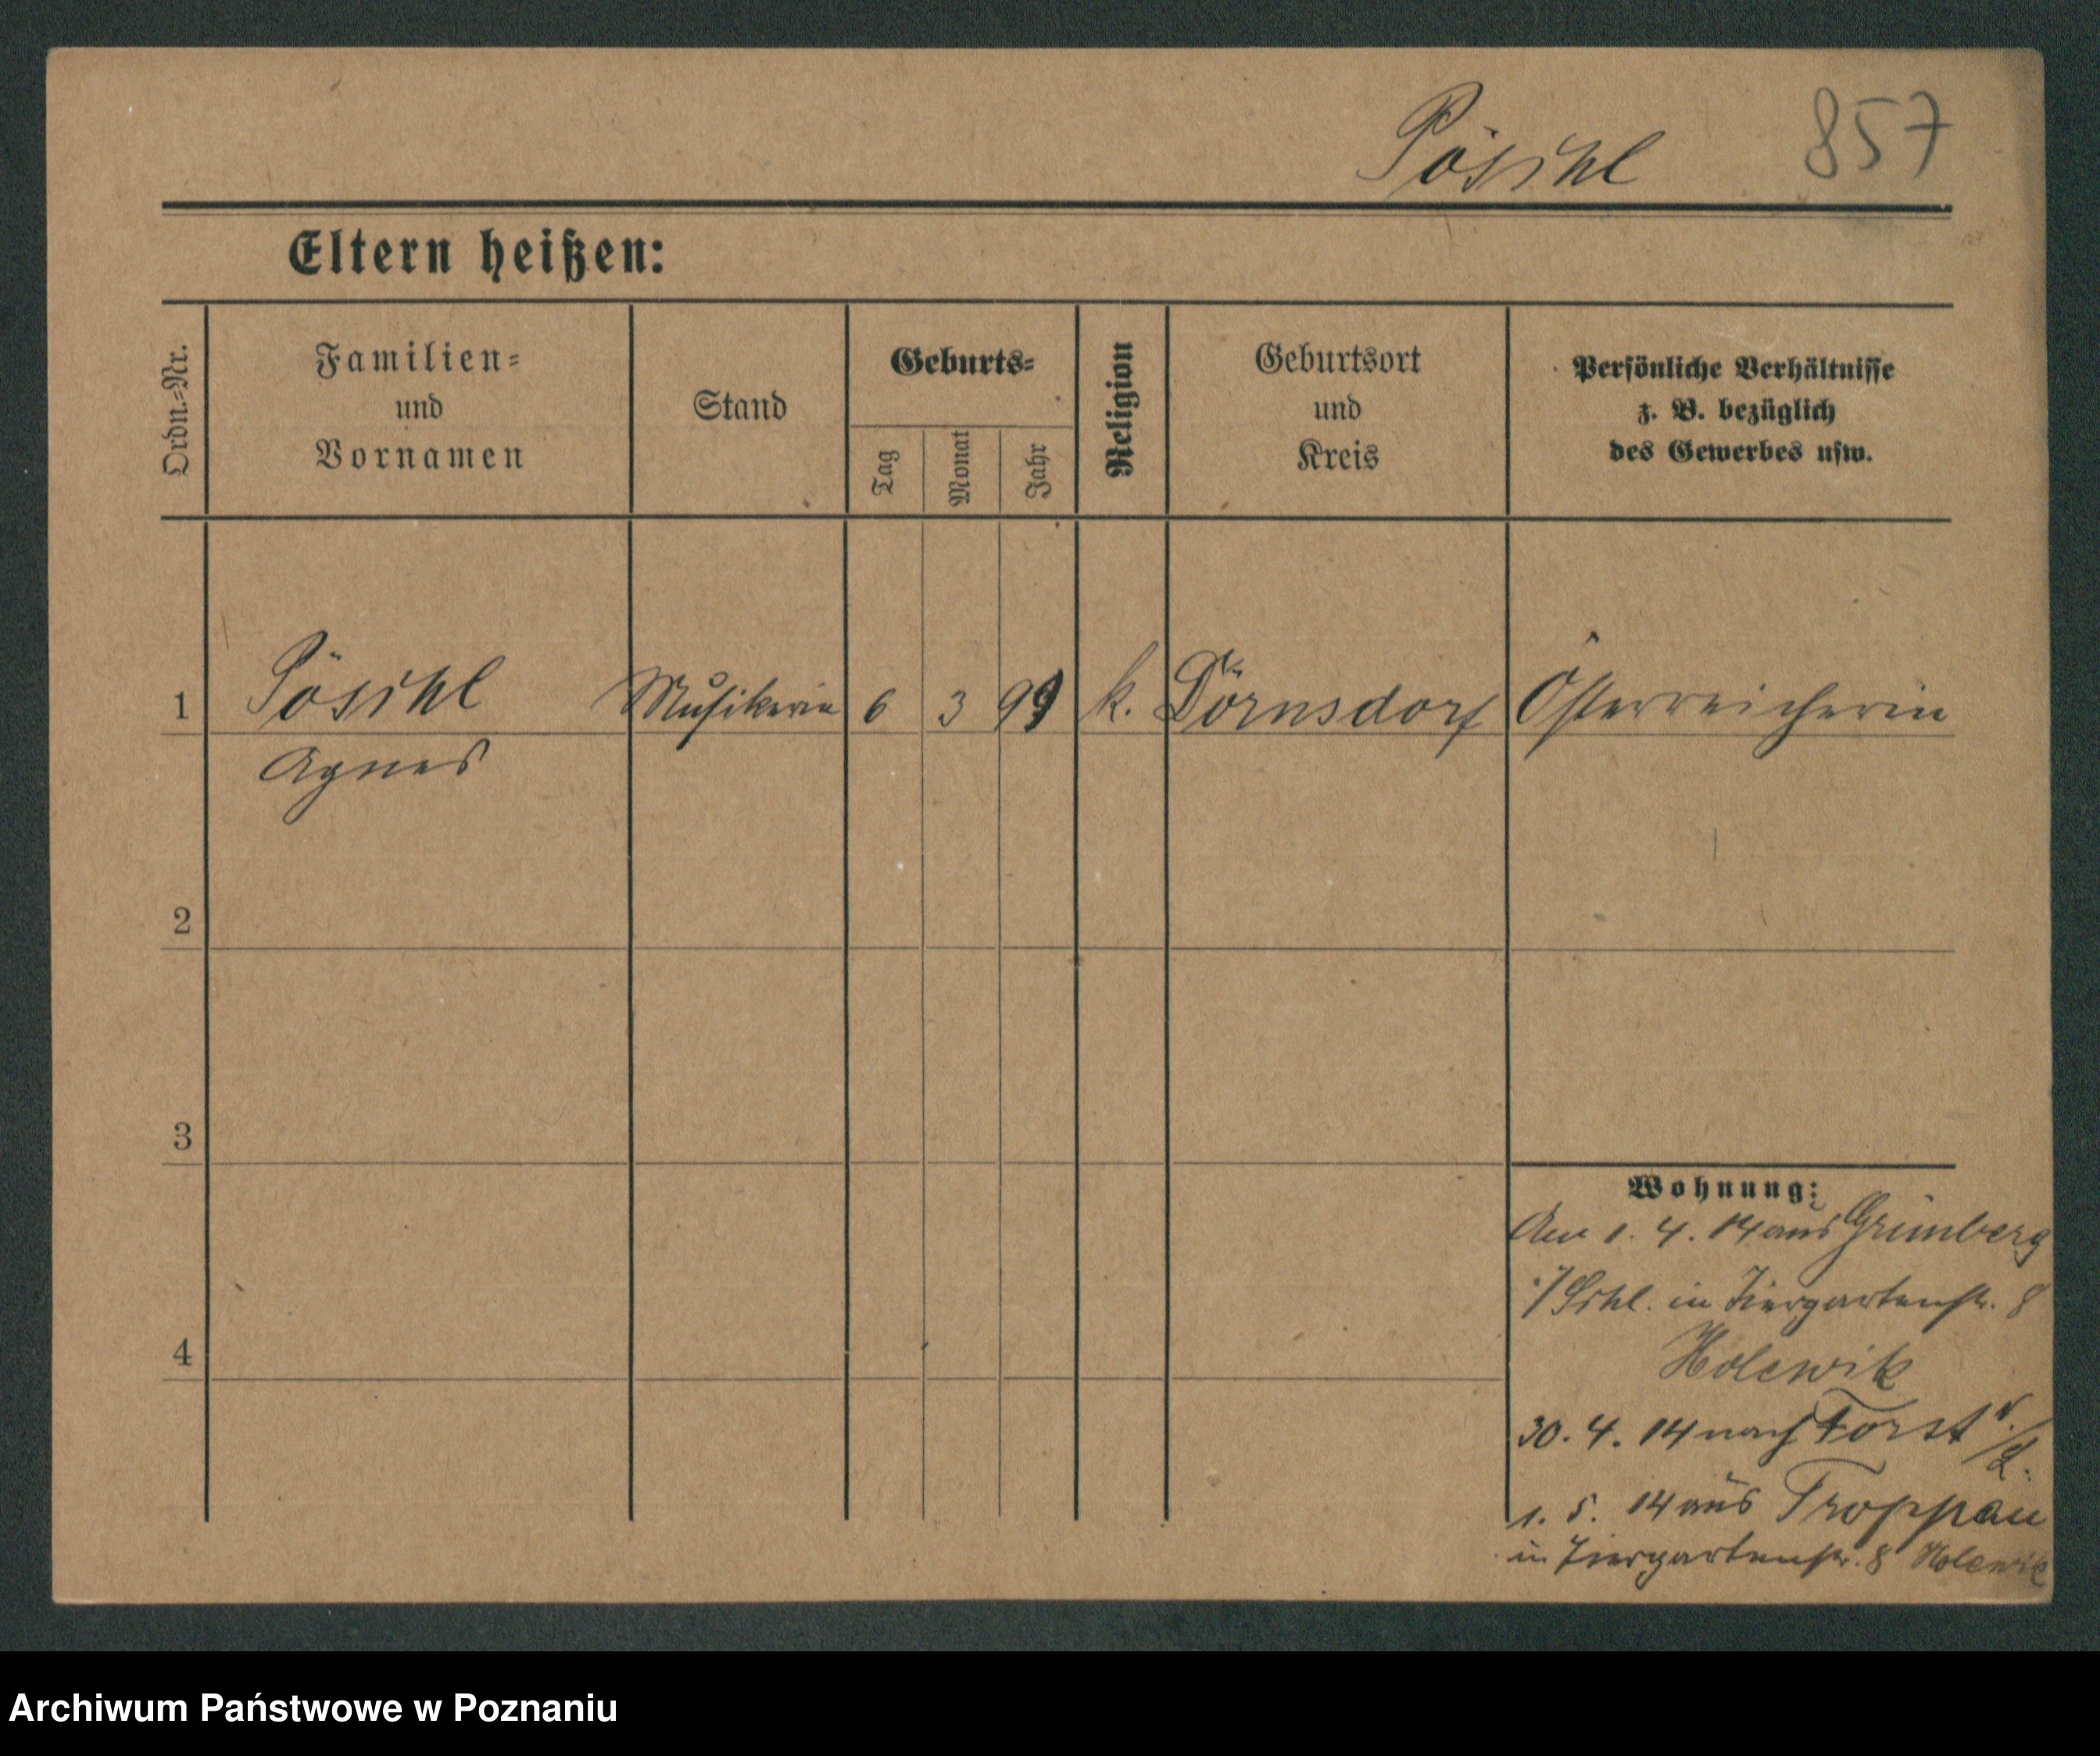 Pöschl 857
Eltern heißen:
Ordn.-Nr.
Familien-
und
Vornamen
Stand
Geburts-
Tag
Monat
Jahr
Religion
Geburtsort
und
Kreis
Persönliche Verhältnisse
z. B. bezüglich
des Gewerbes usw.
1 Pöschl Musikerin 6 3 99 k. Dörnsdorf Österreicherin
Agnes
2
3
4
Wohnung:
1. 4. 14 aus Grünberg
i/Schl. in Tiergartenstr. 8
Holewik
30. 4. 14 nach Forst
1. 5. 14 aus Troppau
in Tiergartenstr. 8 Holewik
Archiwum Państwowe w Poznaniu